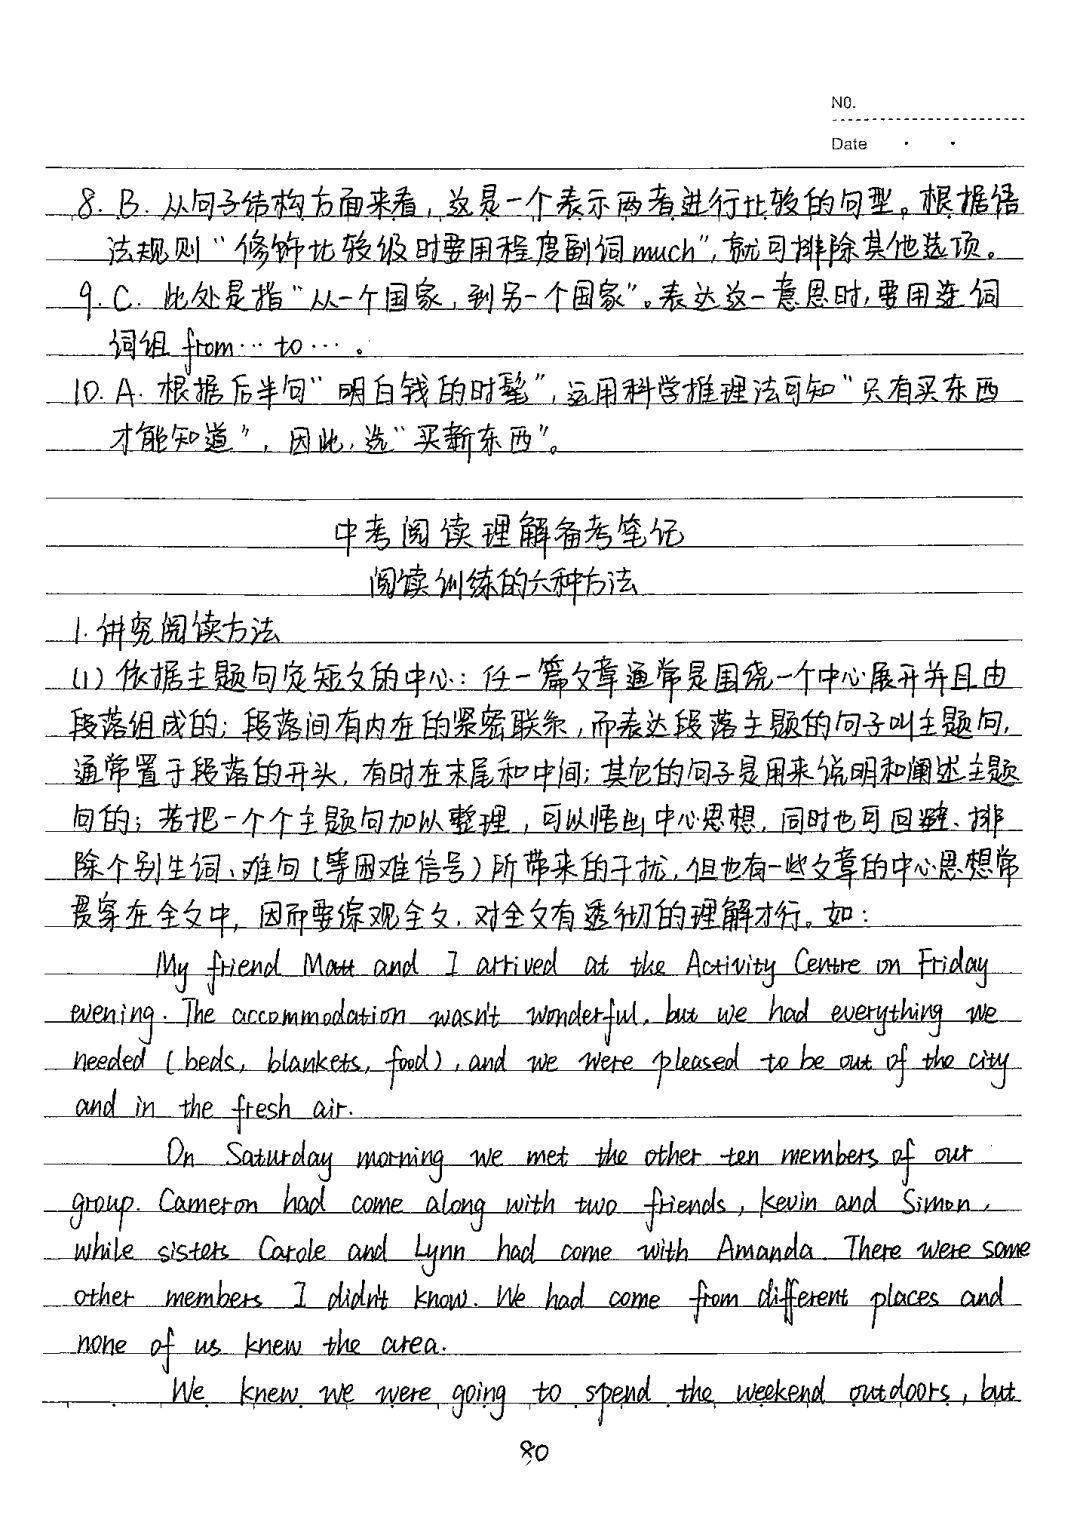 NO.
Date
8. B. 从句子结构方面来看，这是一个表示两者进行比较的句型。根据语
法规则“修饰比较级时要用程度副词much”，就可排除其他选项。
9. C. 此处是指“从一个国家，到另一个国家”。表达这一意思时，要用连词
词组 from… to…。
10. A. 根据后半句“明白钱的时髦”，运用科学推理法可知“只有买东西
才能知道”，因此，选“买新东西”。
中考阅读理解备考笔记
阅读训练的六种方法
1. 讲究阅读方法
(1) 依据主题句定短文的中心：任一篇文章通常是围绕一个中心展开并且由
段落组成的；段落间有内在的紧密联系，而表达段落主题的句子叫主题句，
通常置于段落的开头，有时在末尾和中间；其它的句子是用来说明和阐述主题
句的；若把一个个主题句加以整理，可以悟出中心思想，同时也可回避、排
除个别生词、难句（等困难信号）所带来的干扰，但也有一些文章的中心思想常
贯穿在全文中，因而要综观全文，对全文有透彻的理解才行。如：
My friend Matt and I arrived at the Activity Centre on Friday
evening. The accommodation wasn't wonderful, but we had everything we
needed (beds, blankets, food), and we were pleased to be out of the city
and in the fresh air.
On Saturday morning we met the other ten members of our
group. Cameron had come along with two friends, Kevin and Simon,
while sisters Carole and Lynn had come with Amanda. There were some
other members I didn't know. We had come from different places and
none of us knew the area.
We knew we were going to spend the weekend outdoors, but
80